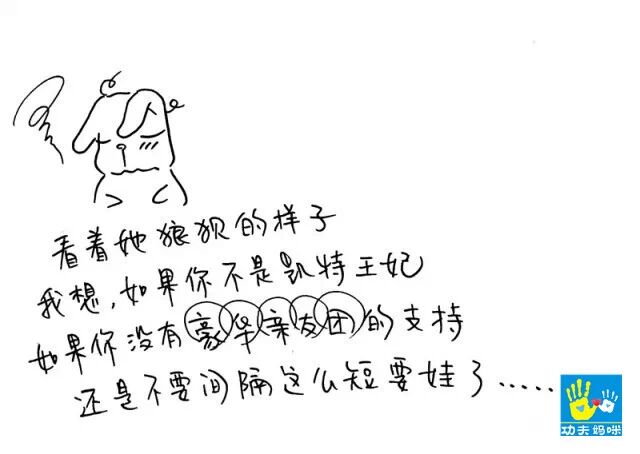 看着她狼狈的样子
我想,如果你不是凯特王妃
如果你没有豪华亲友团的支持
还是不要间隔这么短要娃了.....
功夫妈咪